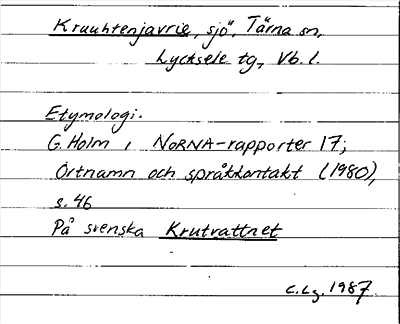 Kruuhtenjavrie, sjö, Tärna sn,
Lycksele tg, Vb. l.
Etymologi.
G. Holm i NORNA-rapporter 17;
Ortnamn och språkkontakt (1980),
s. 46
På svenska Krutvattnet
C. Lg. 1987.